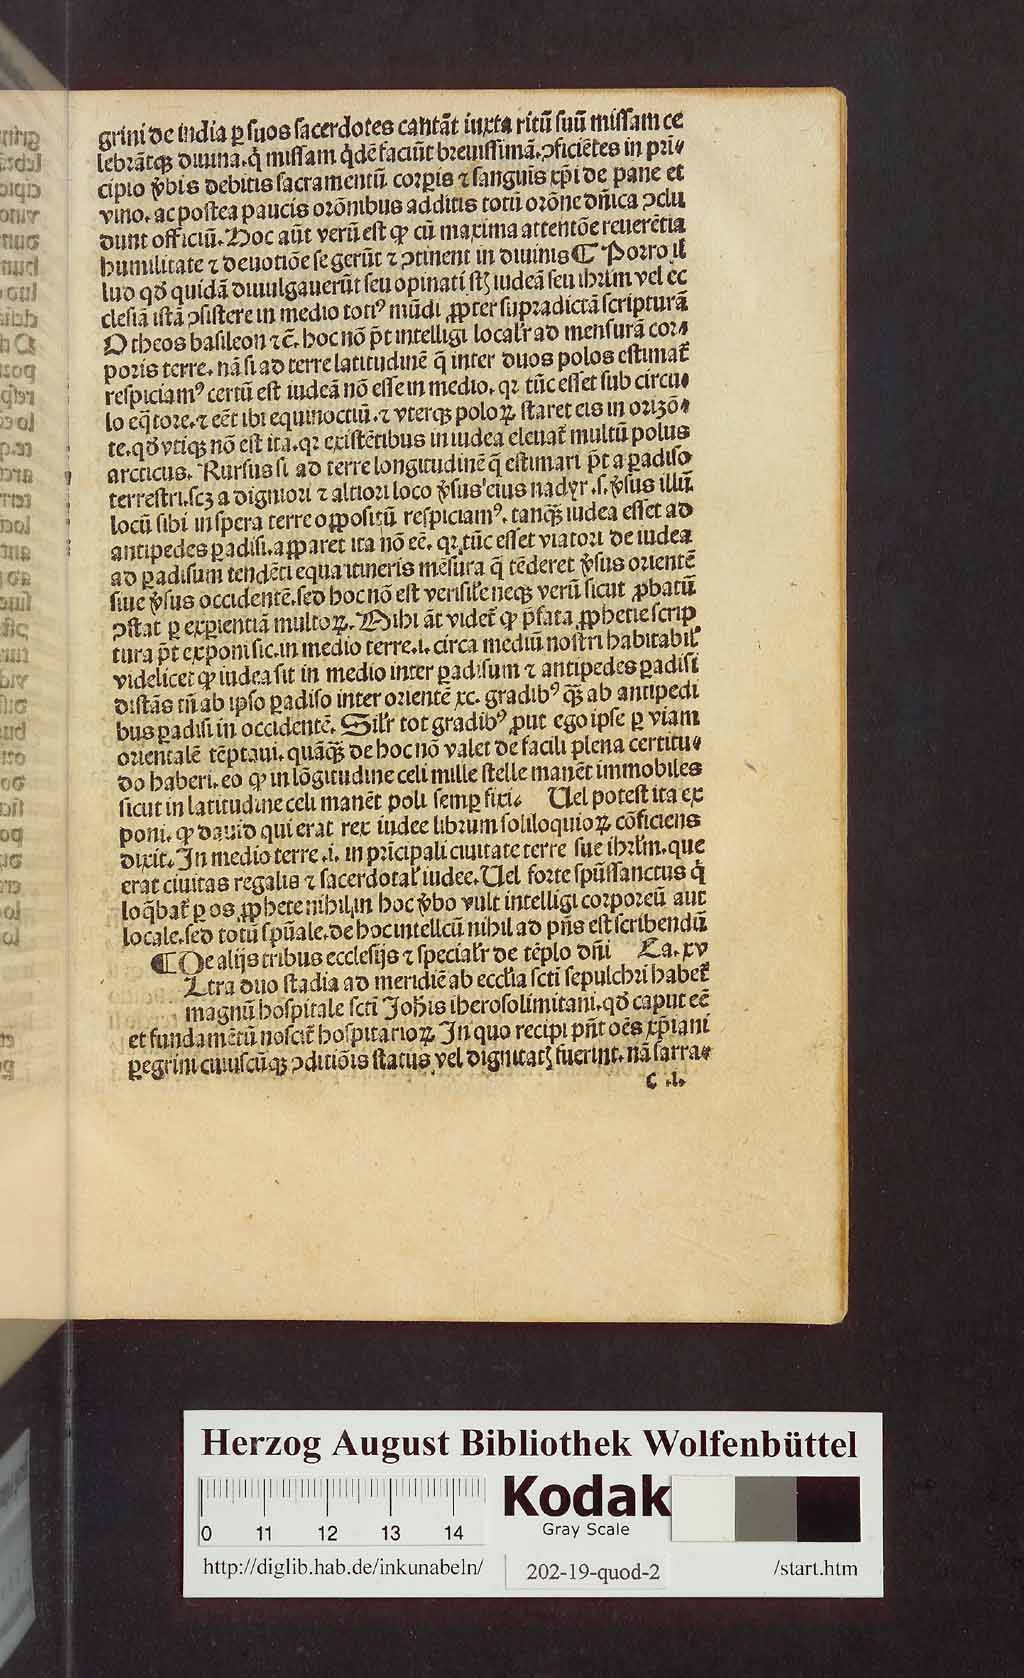 grini de india ꝑ suos sacerdotes cantāt iuxta ritū suū missam ce
lebrātqꝫ diuina. q̇ missam q̇dē faciūt breuissimā. ꝯficiētes in pri⸗
cipio v̄bis debitis sacramentū corꝑis ⁊ sanguis xp̄i de pane et
vino. ac postea paucis orōnibus additis totū orōne dn̄ica ꝯclu
dunt officiū. Hoc aūt verū est ꝙ cū maxima attentōe reuerētia
humilitate ⁊ deuotiōe se gerūt ⁊ ꝯtinent in diuinis ¶ Porro il
lud qd̄ quidā diuulgauerūt seu opinati stꝫ iudeā seu ihrlm̄ vel ec
clesiā istā ꝯsistere in medio totiꝰ mūdi ꝓpter supradictā scripturā
O theos basileon ⁊c̄. hoc nō p̄t intelligi localr̄ ad mensurā cor⸗
poris terre. nā si ad terre latitudinē q̄ inter duos polos estimat̄
respiciamꝰ certū est iudeā nō esse in medio. qr tūc esset sub circu⸗
lo eq̄tore. ⁊ eēt ibi equinoctiū. ⁊ vterqꝫ poloꝝ staret eis in orizō⸗
te. qd̄ vtiqꝫ nō est ita. qr existētibus in iudea eleuat̄ multū polus
arcticus. Rursus si ad terre longitudinē q̄ estimari p̄t a ꝑadiso
terrestri. scꝫ a digniori ⁊ altiori loco v̄sus eius nadyr .s. v̄sus illū
locū sibi in spera terre oꝓpositū respiciamꝰ. tanqꝫ iudea esset ad
antipedes ꝑadisi. aꝓparet ita nō eē. qr tūc esset viatori de iudea
ad ꝑadisum tendēti equa itineris mēsura q̄ tēderet v̄sus orientē
siue v̄sus occidentē. sed hoc nō est verisile neqꝫ verū sicut ꝓbatū
ꝯstat ꝑ exꝑientiā multoꝝ. Mihi āt videt̄ ꝙ p̄fata ꝓphetie scrip
tura p̄t exponi sic. in medio terre .i. circa mediū nostri habitabil̄
videlicet ꝙ iudea sit in medio inter ꝑadisum ⁊ antipedes ꝑadisi
distās tn̄ ab ipso ꝑadiso inter orientē xc. gradibꝰ qꝫ ab antipedi
bus ꝑadisi in occidentē. Silr̄ tot gradibꝰ ꝓut ego ipse ꝑ viam
orientalē tēptaui. quāqꝫ de hoc nō valet de facili plena certitu⸗
do haberi. eo ꝙ in lōgitudine celi mille stelle manēt immobiles
sicut in latitudine celi manēt poli semꝑ fixi. Uel potest ita ex
poni. ꝙ dauid qui erat rex iudee librum soliloquioꝝ cōficiens
dixit. In medio terre .i. in prīcipali ciuitate terre sue ihrlm̄. que
erat ciuitas regalis ⁊ sacerdotal̄ iudee. Uel forte spūssanctus q̇
loq̄bat̄ ꝑ os ꝓphete nihil in hoc v̄bo vult intelligi corporeū aut
locale. sed totū spūale. de hoc intellcū nihil ad pn̄s est scribendū
¶ De alijs tribus ecclesijs ⁊ specialr̄ de tēplo dn̄i Ca. xv
Ltra duo stadia ad meridiē ab ecclīa scti sepulchri habet̄
magnū hospitale scti Joh̄is iherosolimitani. qd̄ caput eē
et fundamētū noscit̄ hospitarioꝝ. In quo recipi pn̄t oēs xp̄iani
ꝑegrini cuiuscūqꝫ ꝯditiōis status vel dignitatꝫ fuerint. nā sarra⸗
c .i.
Herzog August Bibliothek Wolfenbüttel
0 11 12 13 14
Kodak
Gray Scale
http://diglib.hab.de/inkunabeln/ 202-19-quod-2 /start.htm